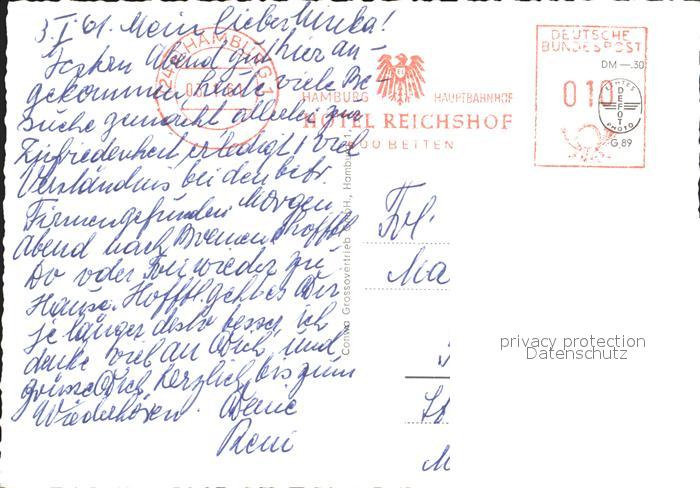 3. I. 61. Mein lieber
Abend gut hier an-
gekommen, heute viele Be-
suche gemacht alles zur
Zufriedenheit erledigt, viel
Verständnis bei den betr.
Firmen gefunden Morgen
Abend nach Bremen hofftl
Do oder Frei wieder zu
Hause. Hofftl. geht es Dir
je länger desto besser, ich
denke viel an Dich und
grüsse Dich herzlich bis zum
Wiederhören. Deine
Reni
HAMBURG 1
HAMBURG HAUPTBAHNHOF
HOTEL REICHSHOF
BETTEN
DEUTSCHE
BUNDESPOST
DM —.30
010
ECHTES
DEFOT
PHOTO
G 89
Conwa Grossovertrieb
Frl.
Ma
privacy protection
Datenschutz